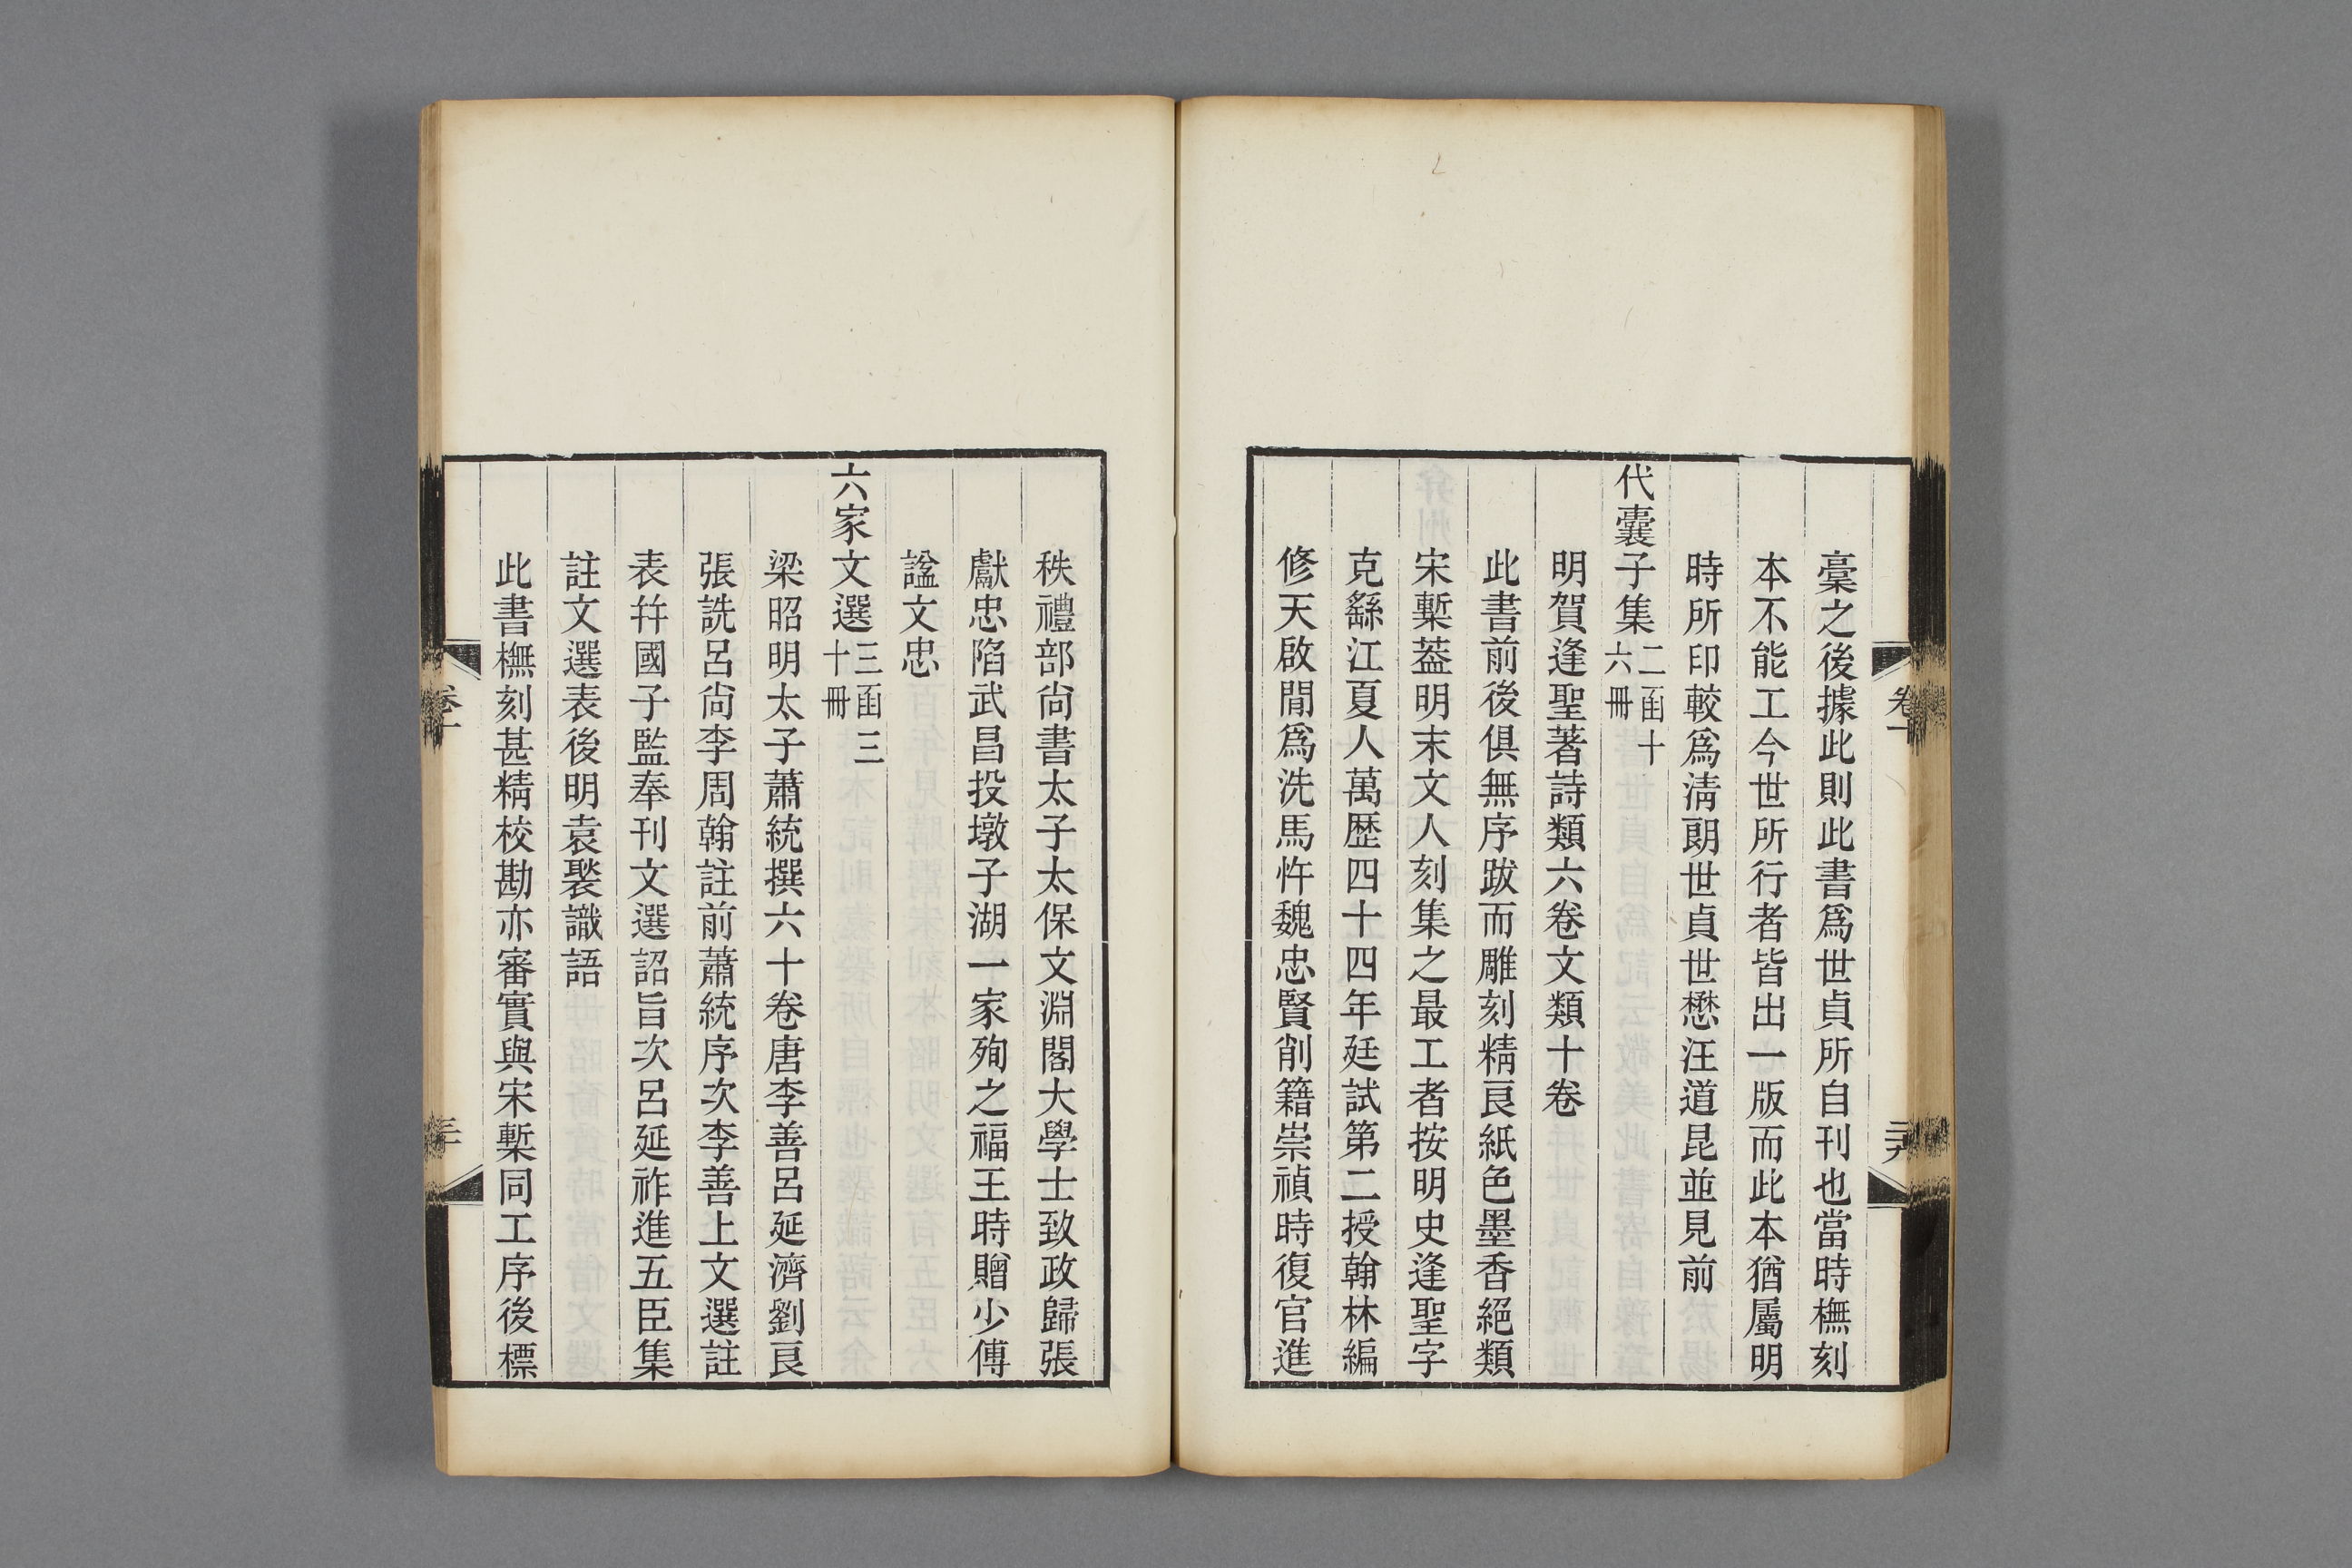 稾之後據此則此書爲世貞所自刊也當時橅刻
本不能工今世所行者皆出一版而此本猶屬明
時所印較爲淸朗世貞世懋汪道昆並見前
代囊子集二函十六冊
明賀逢聖著詩類六卷文類十卷
此書前後俱無序跋而雕刻精良紙色墨香絕類
宋槧葢明末文人刻集之最工者按明史逢聖字
克繇江夏人萬歷四十四年廷試第二授翰林編
修天啟閒爲洗馬忤魏忠賢削籍崇禎時復官進
秩禮部尙書太子太保文淵閣大學士致政歸張
獻忠陷武昌投墩子湖一家殉之福王時贈少傅
諡文忠
六家文選三函三十冊
梁昭明太子蕭統撰六十卷唐李善呂延濟劉良
張詵呂尙李周翰註前蕭統序次李善上文選註
表幷國子監奉刊文選詔旨次呂延祚進五臣集
註文選表後明袁褧識語
此書橅刻甚精校勘亦審實與宋槧同工序後標
卷一